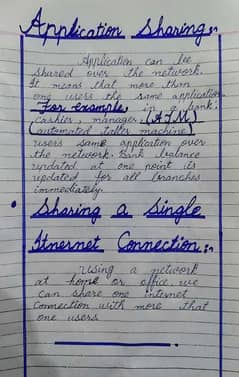 Application Sharing:-
Application can be
shared over the network.
It means that more than
one users the same application.
For example, in a bank:
cashier, manager, (ATM)
(automated taller machine)
users same application over
the network. Bank balance
updated at one point is
updated for all branches
immediately.
• Sharing a Single
Itnernet Connection:-
Using a network
at home or office we
can share one internet
connection with more that
one users